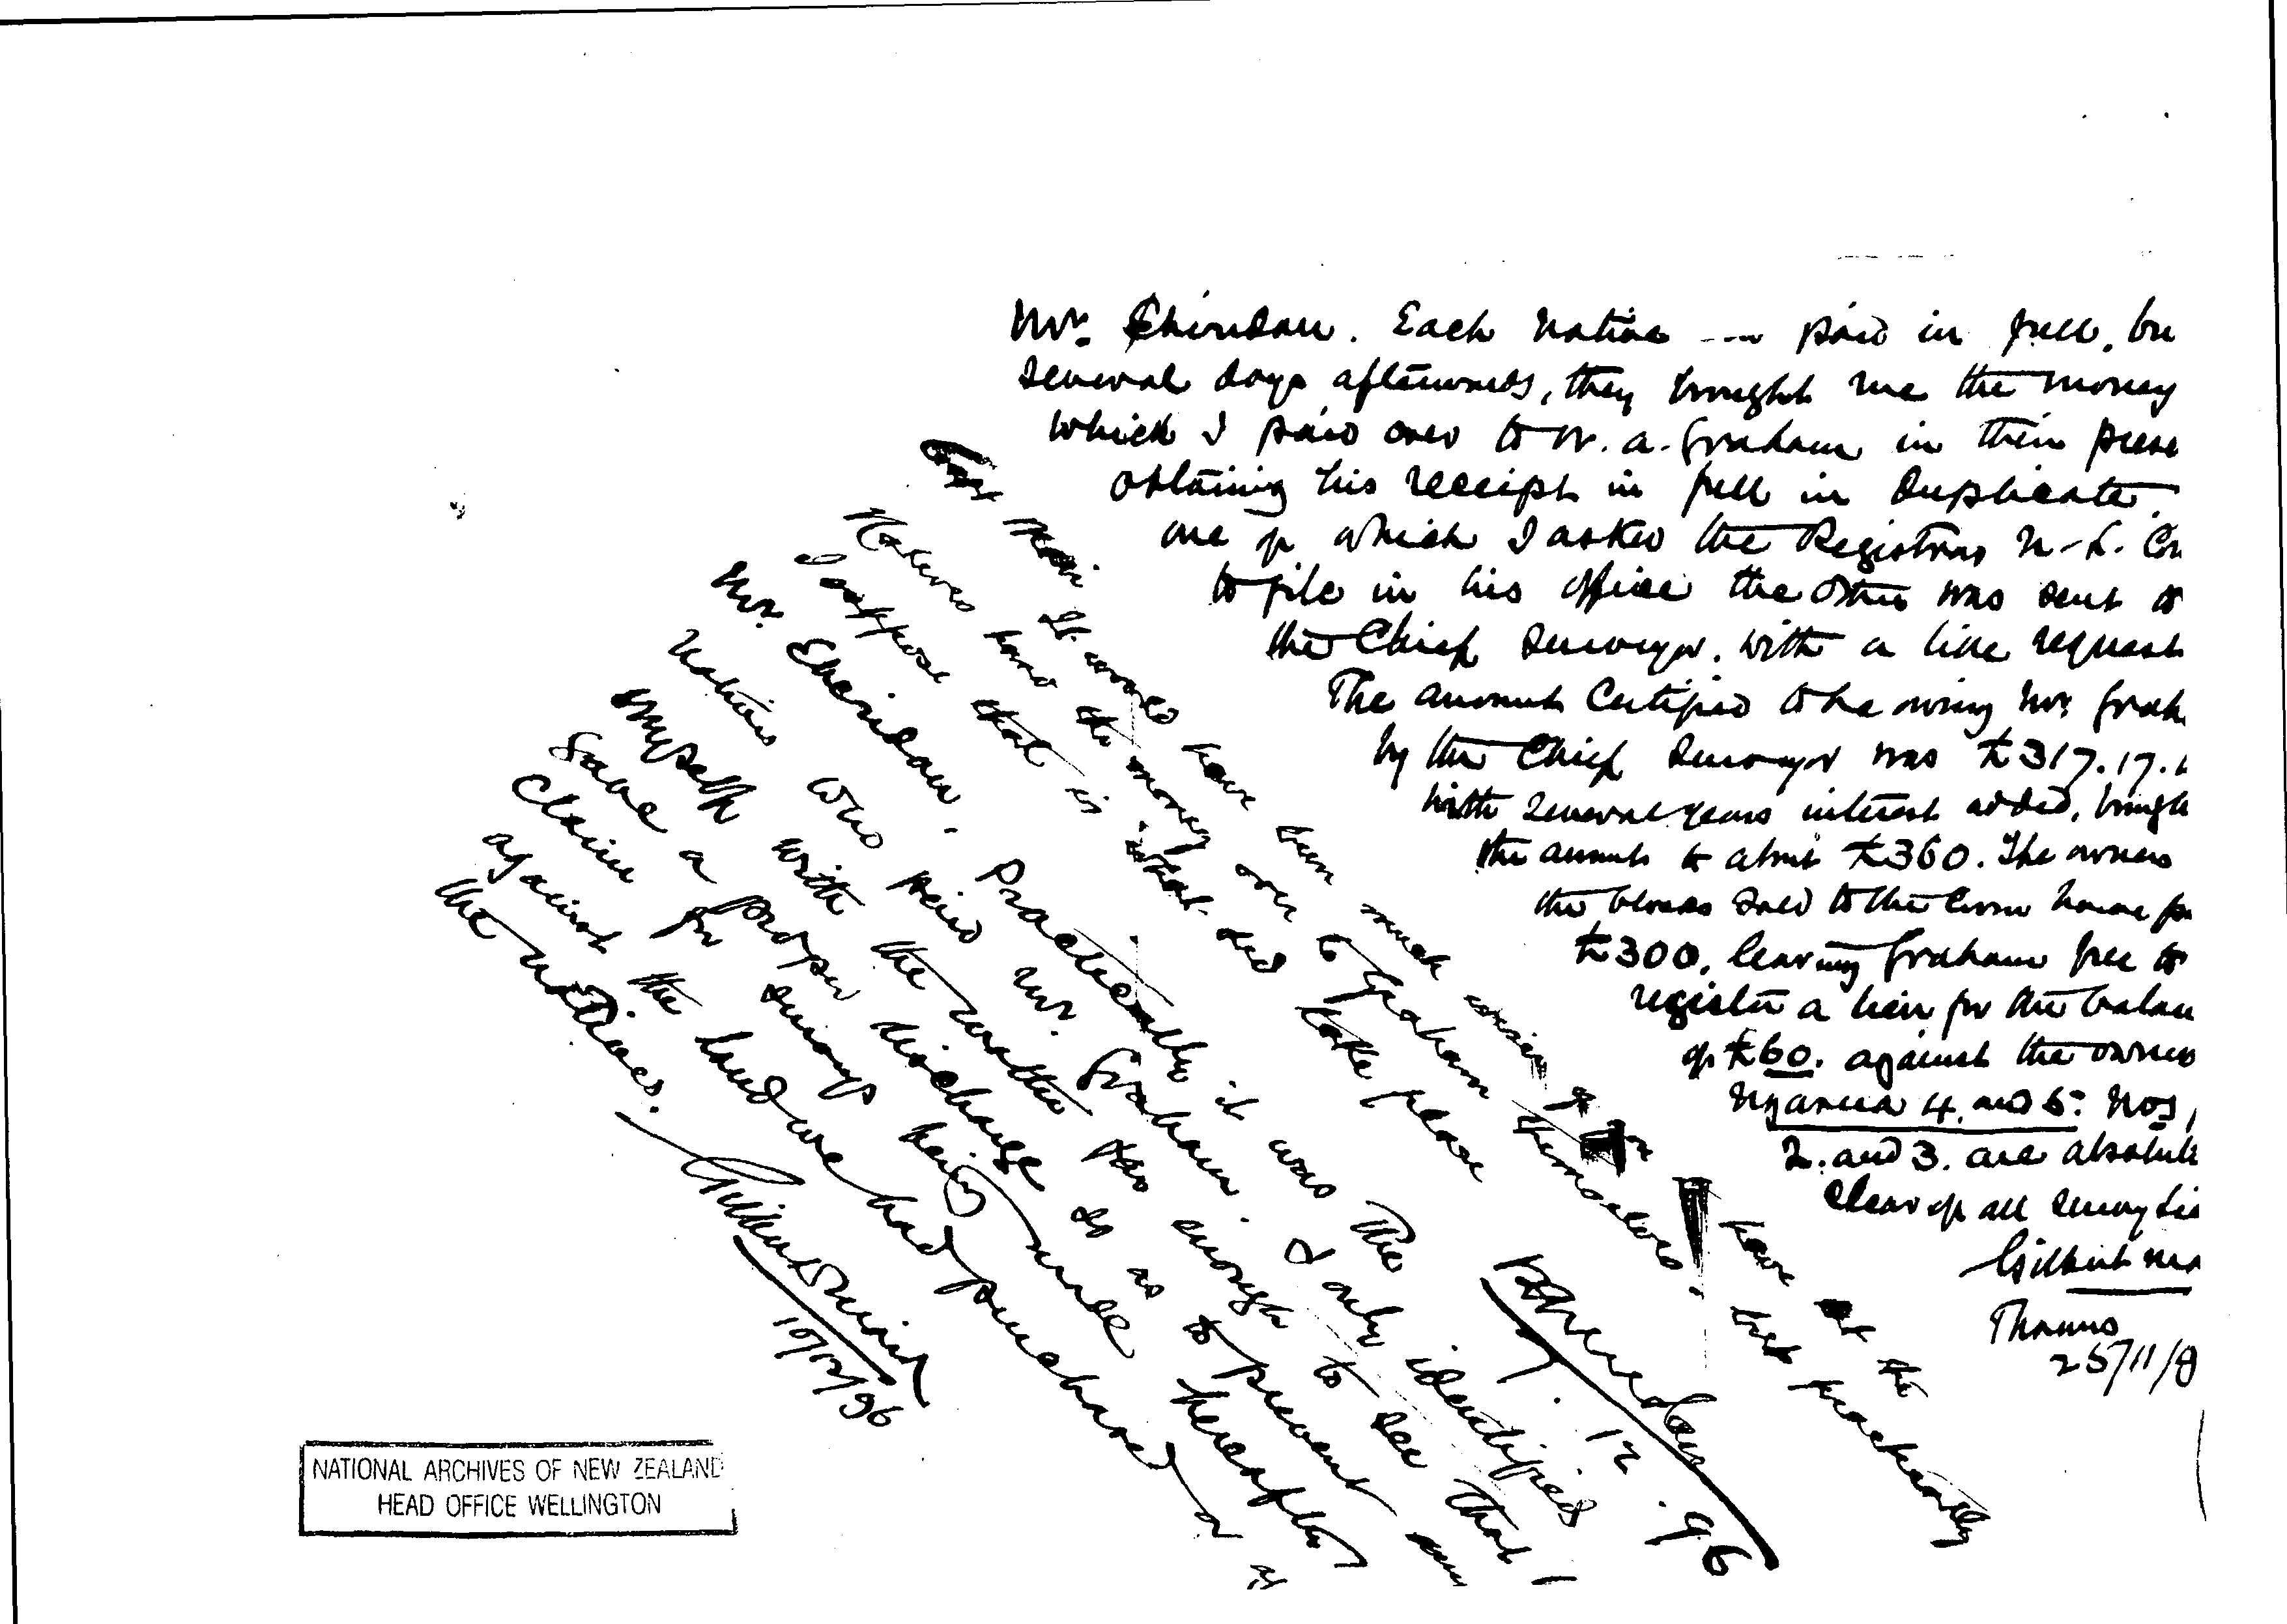 Mr. Sheridan. Each native --- paid in full, bu
several days afterwards, they brought me the money
which I paid over to W. A. Graham in their prese
obtaining his receipt in full in duplicate.
one of which I asked the Registrar N. L. Co
to file in his office the other was sent to
the Chief Surveyor, with a like request
The amount Certified to be owing Mr. Grah
by the Chief Surveyor was £317.17.
with several years interest added, brough
the amount to about £360. The owners
the blocks sold to the Crown have p
£300, leaving Graham free to
register a lien for the balan
of £60. against the owners
4. and 5. Nos,
2. and 3. are absolute
clear of all survey lie
Gilbert Ma
Thames
25/11/9
Mair it would have been much wiser to have let the
Natives hand the money over to Graham themselves. but practically
I suppose that is what did take place
12.96
Mr. Sheridan. Practically it was the
natives who paid Mr. Graham. I only identified
myself with the matter so enough to see that I
gave a proper discharge so as to prevent any
claim for survey being made hereafter
against the land we had purchased, or as
the natives.
Gilbert Mair
10/12/96
NATIONAL ARCHIVES OF NEW ZEALAND
HEAD OFFICE WELLINGTON